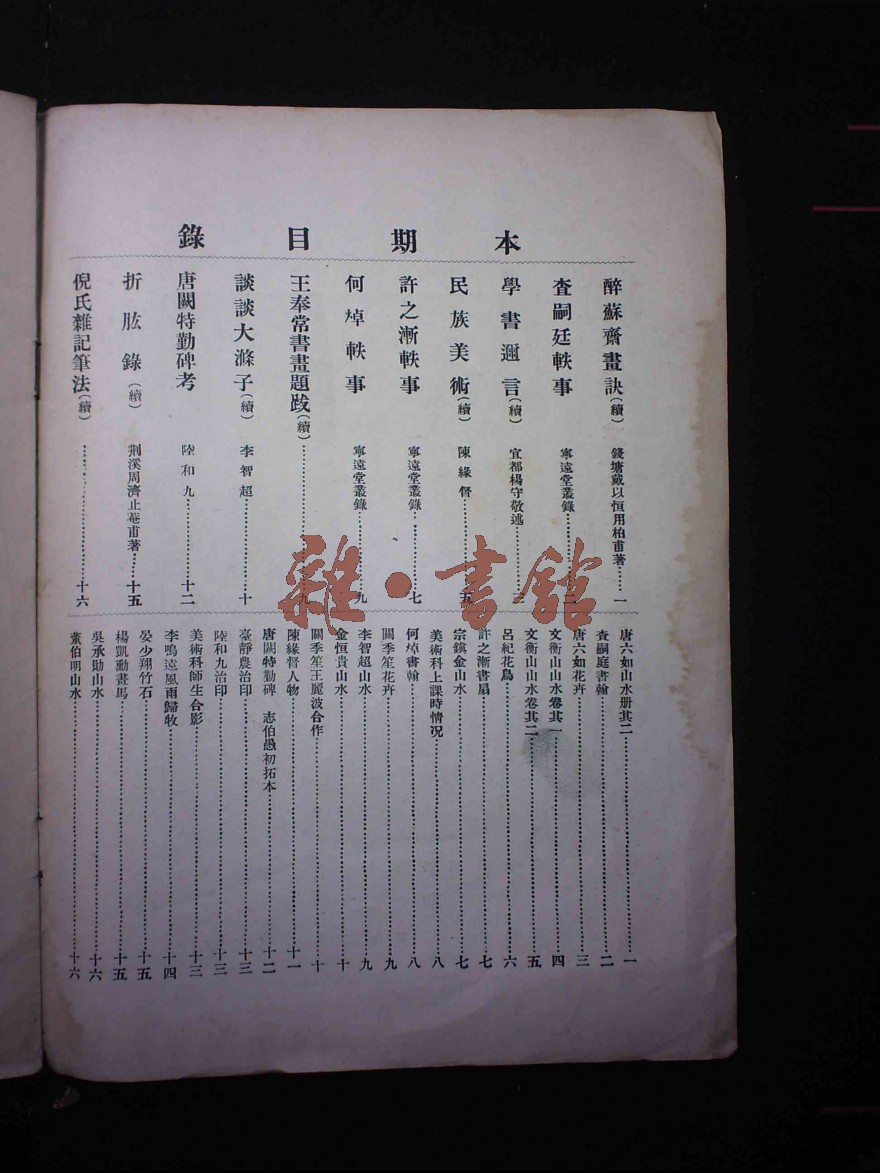 本期目錄
醉蘇齋畫訣(續) 錢塘戴以恒用柏甫著……一
查嗣廷軼事 寧遠堂叢錄……二
學書邇言(續) 宜都楊守敬述……三
民族美術(續) 陳緣督……五
許之漸軼事 寧遠堂叢錄……七
何焯軼事 寧遠堂叢錄……九
王奉常書畫題跋(續)……九
談談大滌子(續) 李智超……十
唐闕特勤碑考 陸和九……十二
折肱錄(續) 荆溪周濟止菴甫著……十五
倪氏雜記筆法(續)……十六
唐六如山水册其二……一
查嗣庭書翰……二
唐六如花卉……三
文衡山山水卷其一……四
文衡山山水卷其二……五
呂紀花鳥……六
許之漸書扇……七
宗鎭金山水……七
美術科上課時情況……八
何焯書翰……八
關季笙花卉……九
李智超山水……九
金恒貴山水……十
關季笙王麗波合作……十
陳緣督人物……十一
唐闕特勤碑 志伯愚初拓本……十二
臺靜農治印……十三
陸和九治印……十三
美術科師生合影……十三
李鳴遠風雨歸牧……十四
晏少翔竹石……十五
楊凱動畫馬……十五
吳承勛山水……十六
董伯明山水……十六
雜·書舘